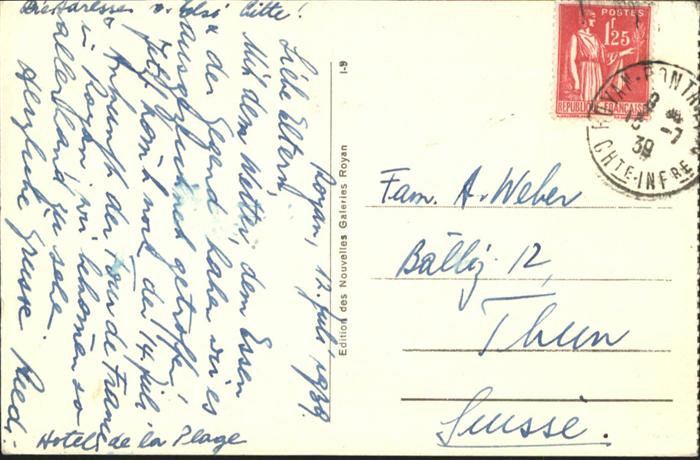 Die Adresse v. Elsi bitte!
Royan, 12. Juli 1939.
Liebe Eltern,
Mit dem Wetter, dem Essen
& der Gegend habe wir es
ausgezeichnet getroffe,
Jetzt komt noch der 14 Juli
& Ankunft der Tour de France
in Royan, wir bekomen so
allerhand zu sehe.
Herzliche Grüsse. Ruedi.
Hotel de la Plage
Edition des Nouvelles Galeries Royan
1-9
POSTES
1f25
REPUBLIQUE FRANÇAISE
ROYAN-PONTAI
13
-7
39
CHTE-INFRE
Fam. A. Weber
Bälliz 12,
Thun
Suisse.